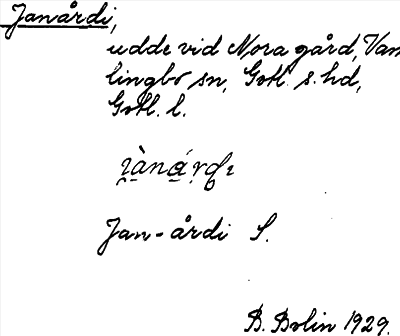 Janårdi,
udde vid Nora gård, Vam
lingbo sn, Gotl. s. hd,
Gotl. l.
Jan-årdi S.
B. Bolin 1929.